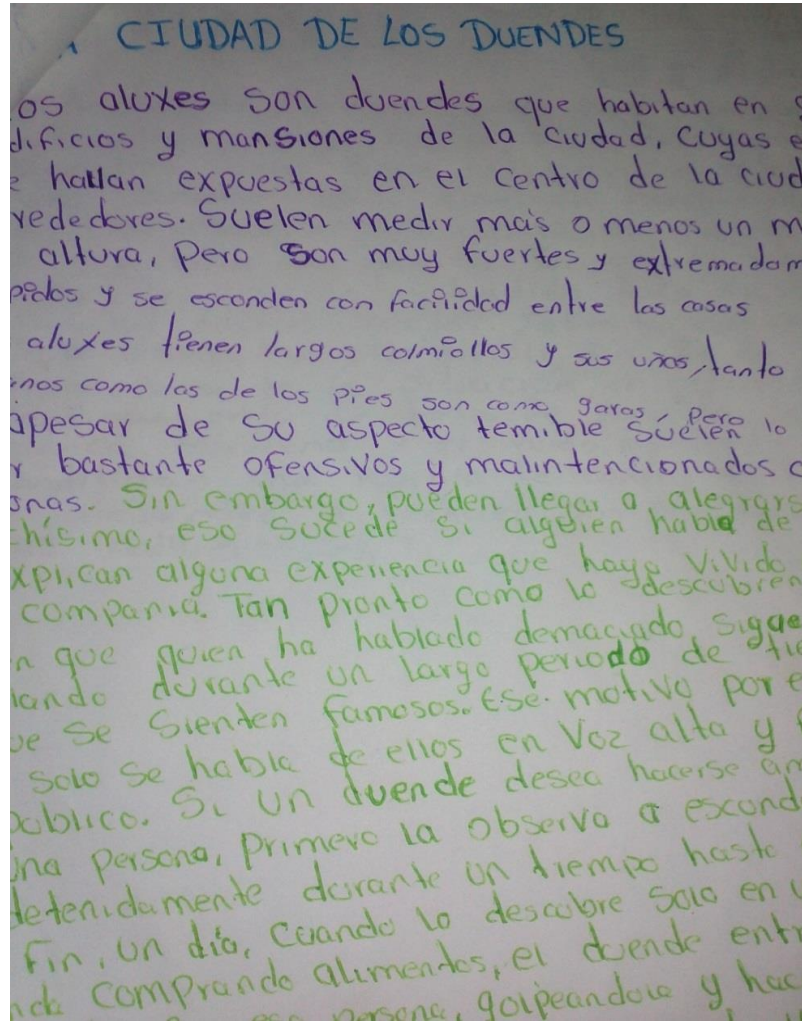 CIUDAD DE LOS DUENDES
os aluxes son duendes que habitan en
dificios y mansiones de la ciudad, cuyas e
e hallan expuestas en el centro de la ciud
rededores. Suelen medir más o menos un m
altura, Pero son muy fuertes y extremadam
pidos y se esconden con facilidad entre las casas
aluxes tienen largos colmillos y sus uñas, tanto
nos como las de los pies son como garas, Pero
apesar de su aspecto temible suelen lo
r bastante ofensivos y malintencionados
onas. Sin embargo, pueden llegar a alegrars
chísimo, eso sucede si alguien habla de
xplican alguna experiencia que haya vivido
compania. Tan pronto como lo descubren
n que quien ha hablado demaciado sigue
lando durante un largo periodo de tie
ue se sienten famosos. Ese motivo por e
solo se habla de ellos en voz alta y
público. Si un duende desea hacerse am
una persona, primero la observa a escond
detenidamente durante un tiempo hasta
fin, un día, cuando lo descubre solo en
nda comprando alimentos, el duende entr
persona, golpeandola y hac